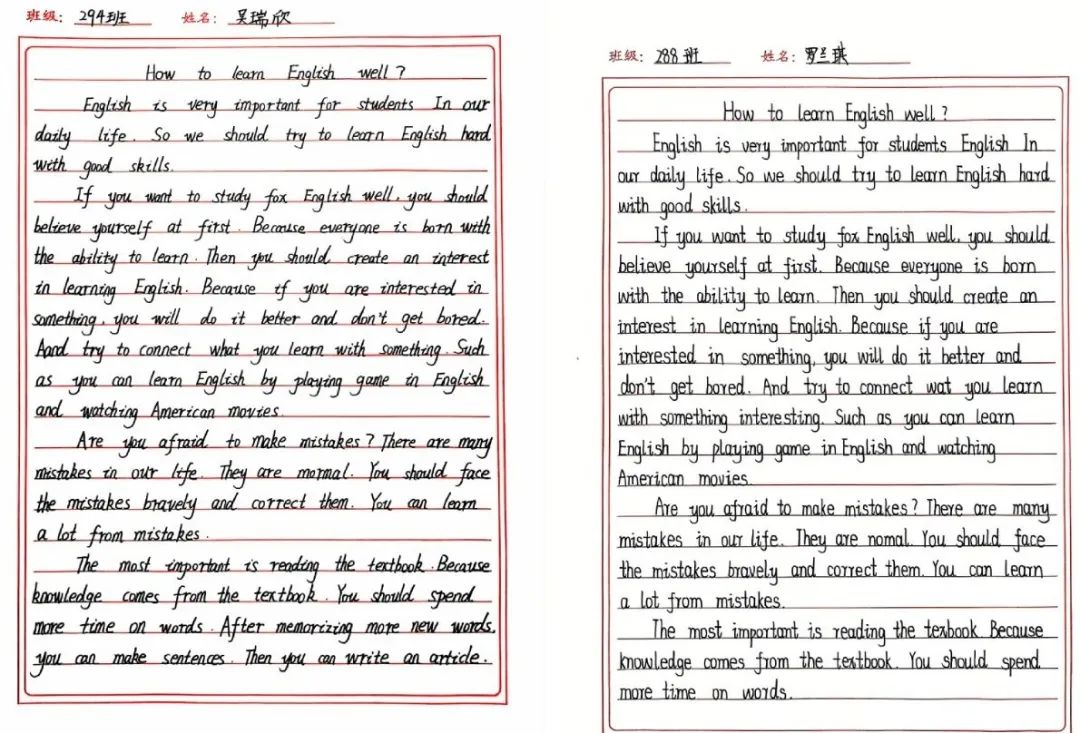 班级: 294班 姓名: 吴瑞欣
How to learn English well ?
English is very important for students In our
daily life. So we should try to learn English hard
with good skills.
If you want to study fox English well, you should
believe yourself at first. Because everyone is born with
the ability to learn. Then you should create an interest
in learning English. Because if you are interested in
something, you will do it better and don't get bored.
Aand try to connect what you learn with something. Such
as you can learn English by playing game in English
and watching American movies.
Are you afraid to make mistakes? There are many
mistakes in our life. They are mormal. You should face
the mistakes bravely and correct them. You can learn
a lot from mistakes.
The most important is reading the textbook. Because
knowledge comes from the textbook. You should spend
more time on words. After memorizing more new words,
you can make sentences. Then you can write an article.
班级: 288班 姓名: 罗兰琪
How to learn English well ?
English is very important for students English In
our daily life. So we should try to learn English hard
with good skills.
If you want to study fox English well, you should
believe yourself at first. Because everyone is born
with the ability to learn. Then you should create an
interest in learning English. Because if you are
interested in something, you will do it better and
don't get bored. And try to connect wat you learn
with something interesting. Such as you can learn
English by playing game in English and watching
American movies.
Are you afraid to make mistakes? There are many
mistakes in our life. They are nomal. You should face
the mistakes bravely and correct them. You can learn
a lot from mistakes.
The most important is reading the texbook. Because
knowledge comes from the textbook. You should spend
more time on words.